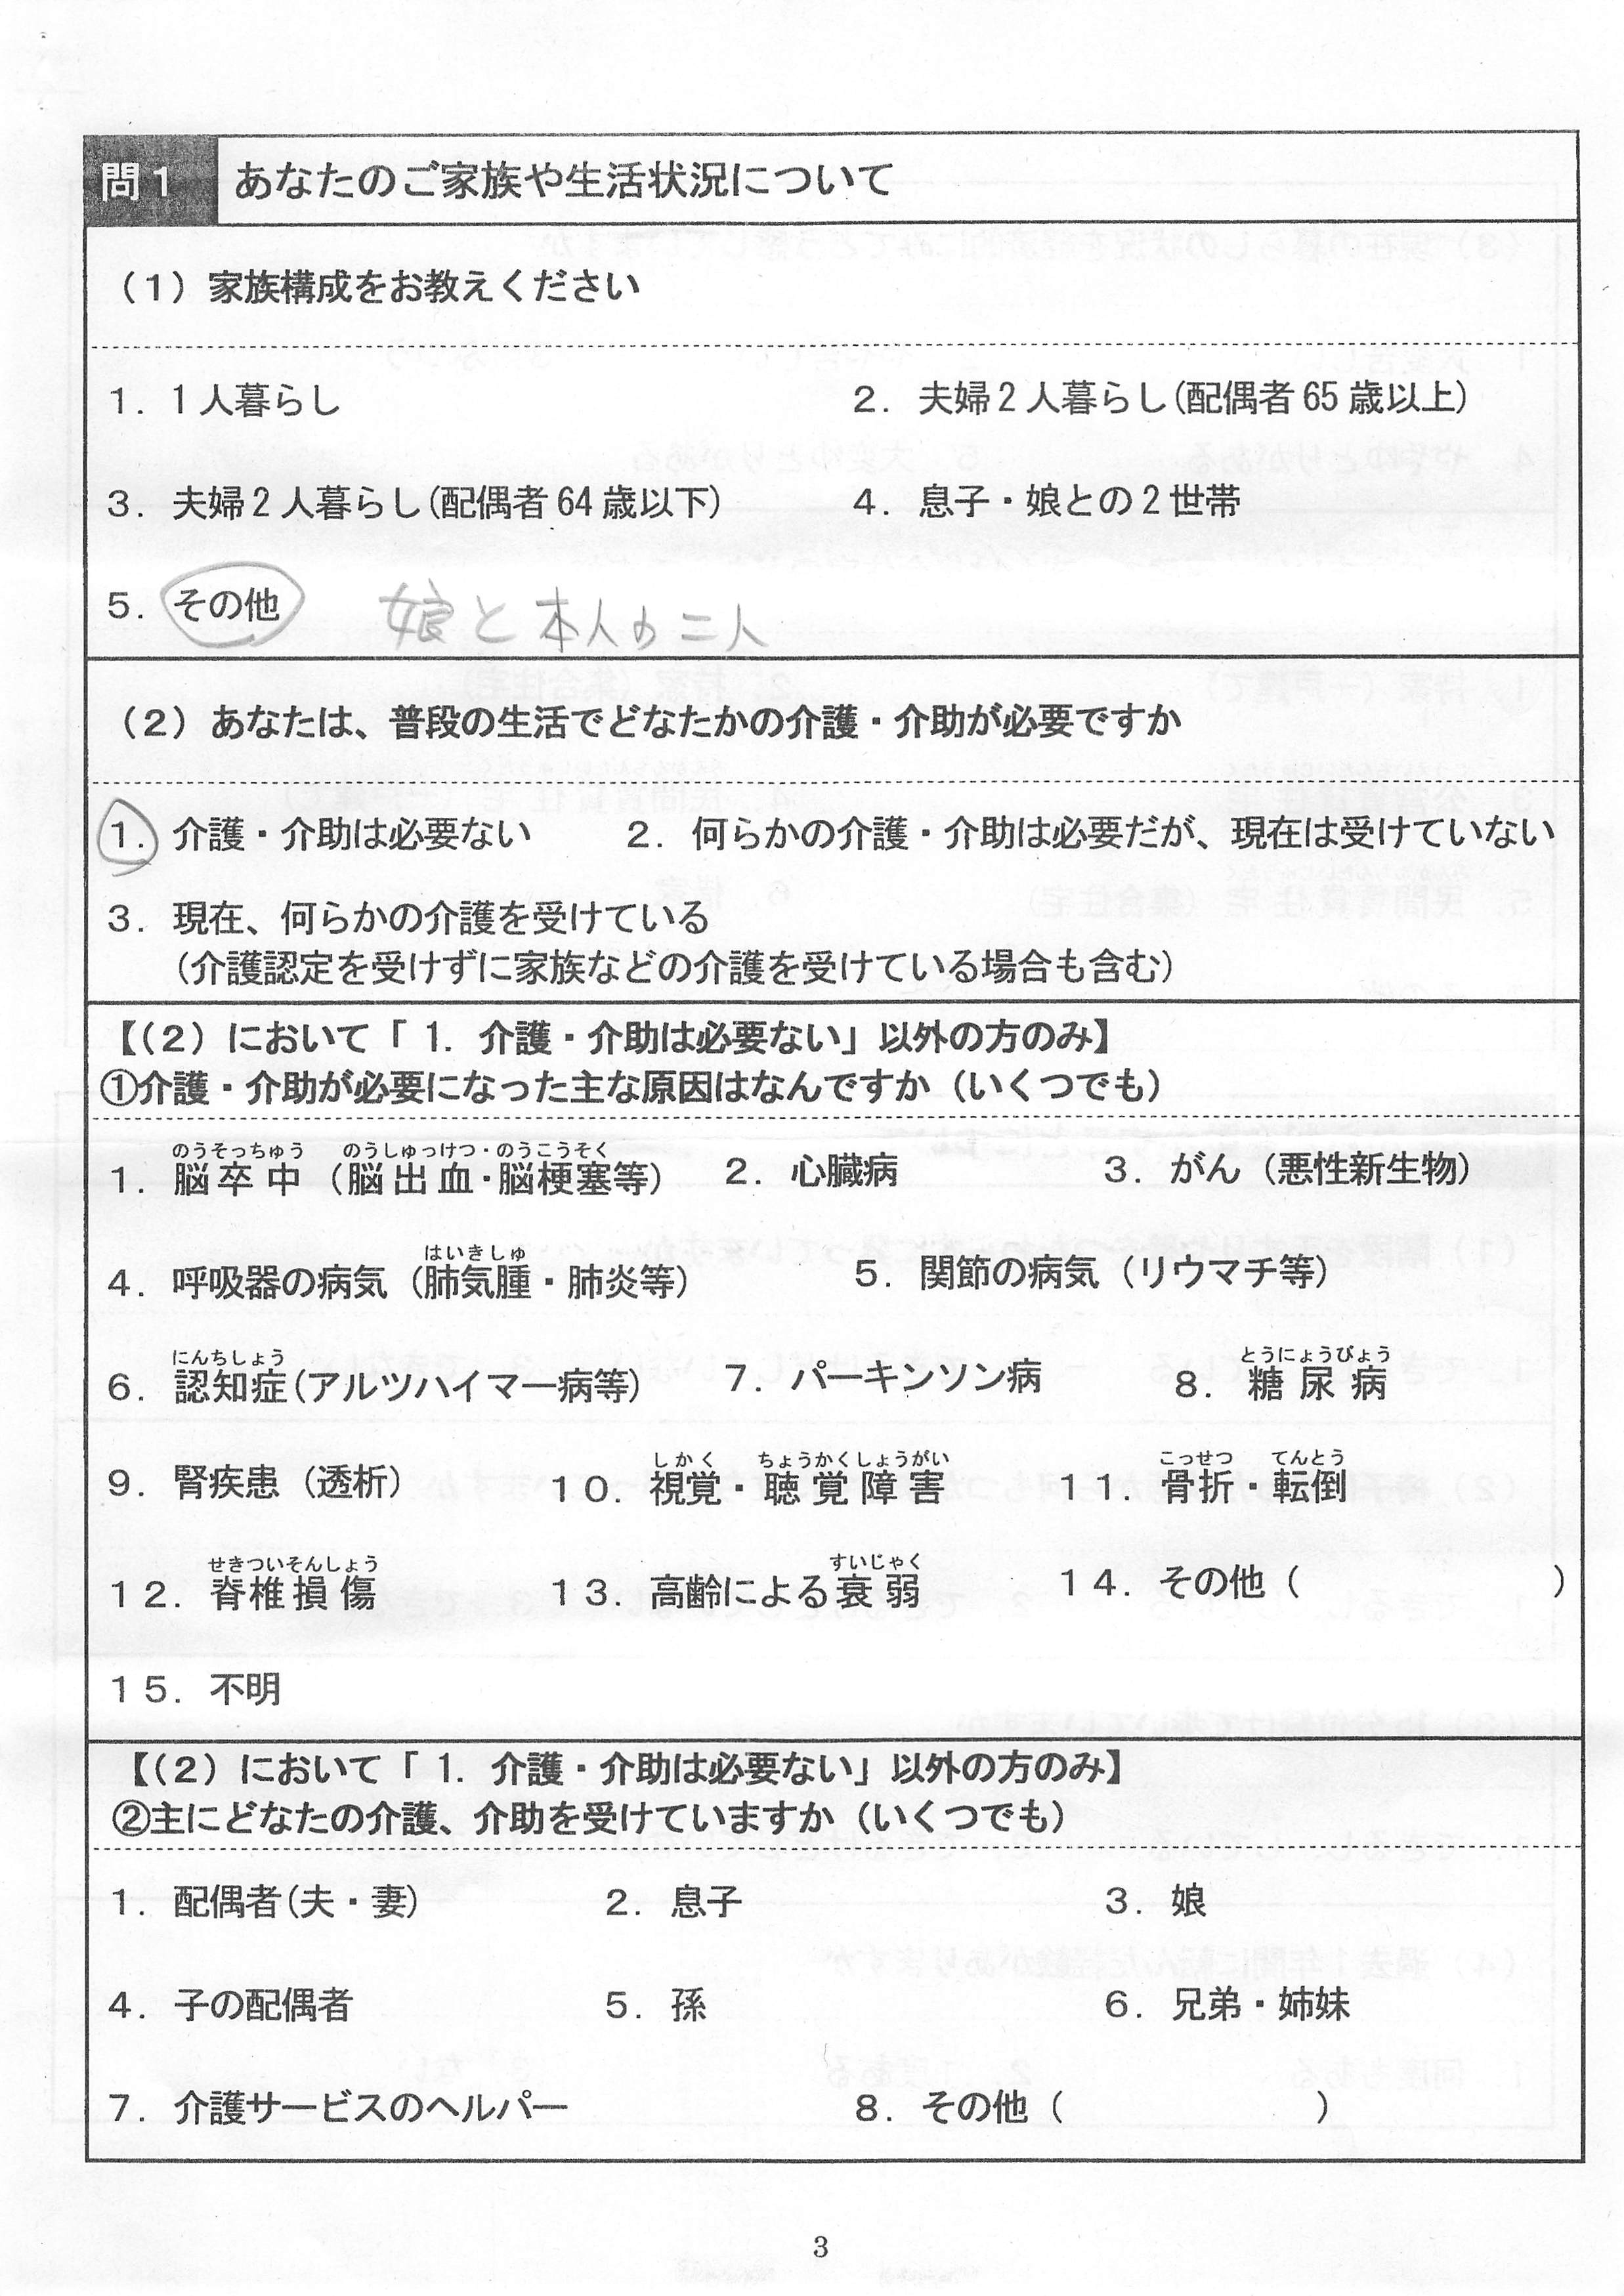 問1 あなたのご家族や生活状況について
（1）家族構成をお教えください
1．1人暮らし 2．夫婦2人暮らし(配偶者65歳以上)
3．夫婦2人暮らし(配偶者64歳以下) 4．息子・娘との2世帯
5．その他 娘と本人の二人
（2）あなたは、普段の生活でどなたかの介護・介助が必要ですか
1．介護・介助は必要ない 2．何らかの介護・介助は必要だが、現在は受けていない
3．現在、何らかの介護を受けている
（介護認定を受けずに家族などの介護を受けている場合も含む）
【（2）において「1．介護・介助は必要ない」以外の方のみ】
①介護・介助が必要になった主な原因はなんですか（いくつでも）
のうそっちゅう のうしゅっけつ・のうこうそく
1．脳卒中（脳出血・脳梗塞等） 2．心臓病 3．がん（悪性新生物）
はいきしゅ
4．呼吸器の病気（肺気腫・肺炎等） 5．関節の病気（リウマチ等）
にんちしょう とうにょうびょう
6．認知症(アルツハイマー病等) 7．パーキンソン病 8．糖尿病
しかく ちょうかくしょうがい こっせつ てんとう
9．腎疾患（透析） 10．視覚・聴覚障害 11．骨折・転倒
せきついそんしょう すいじゃく
12．脊椎損傷 13．高齢による衰弱 14．その他（ ）
15．不明
【（2）において「1．介護・介助は必要ない」以外の方のみ】
②主にどなたの介護、介助を受けていますか（いくつでも）
1．配偶者(夫・妻) 2．息子 3．娘
4．子の配偶者 5．孫 6．兄弟・姉妹
7．介護サービスのヘルパー 8．その他（ ）
3